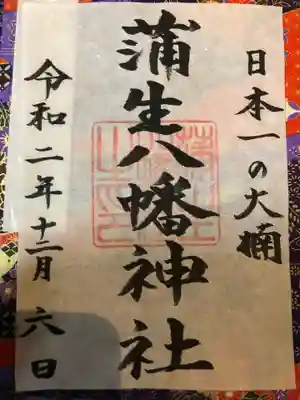 日本一の大楠
蒲生八幡神社
令和二年十二月六日